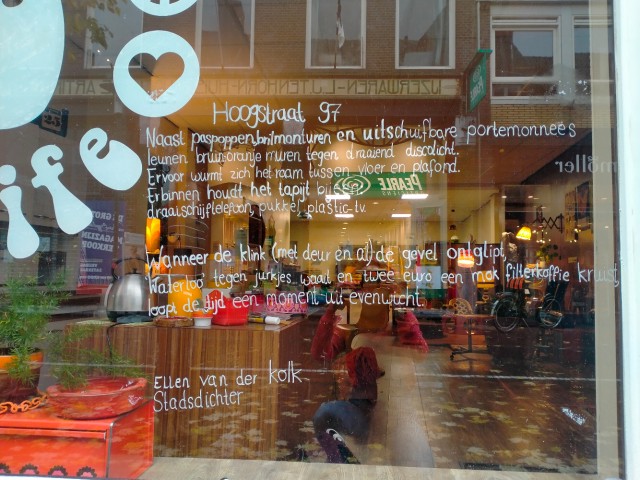 ife
Hoogstraat 97
Naast paspoppen, brilmonturen en uitschuifbare portemonnees
leunen bruin-oranje muren tegen draaiend discolicht.
Ervoor wurmt zich het raam tussen vloer en plafond.
Erbinnen houdt het tapijt bij
draaischijftelefoon, pukkel, plastic tv.
Wanneer de klink (met deur en al) de gevel ontglipt,
Waterloo tegen jurkjes waait en twee euro een mok filterkoffie kruist,
loopt de tijd een moment uit evenwicht.
Ellen van der Kolk
Stadsdichter
PEARLE
IJZERWAREN-LUTENHORN-HU
ARTI
möller